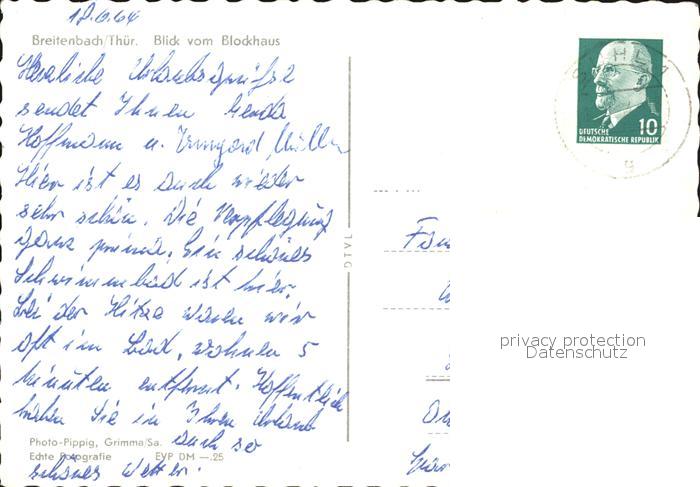 18.6.64
Breitenbach/Thür. Blick vom Blockhaus
Herzliche Urlaubsgrüße
sendet Ihnen Gerda
Hoffmann u. Irmgard Müller
Hier ist es auch wieder
sehr schön. Die Verpflegung
ganz prima. Ein schönes
Schwimmbad ist hier.
Bei der Hitze waren wir
oft im Bad, wohnen 5
Minuten entfernt. Hoffentlich
haben Sie in Ihren Urlaub
auch so
schönes Wetter.
Photo-Pippig, Grimma/Sa.
Echte Fotografie EVP DM —.25
DTVL
SUHL 1
10
DEUTSCHE
DEMOKRATISCHE REPUBLIK
g
Fam
privacy protection
Datenschutz